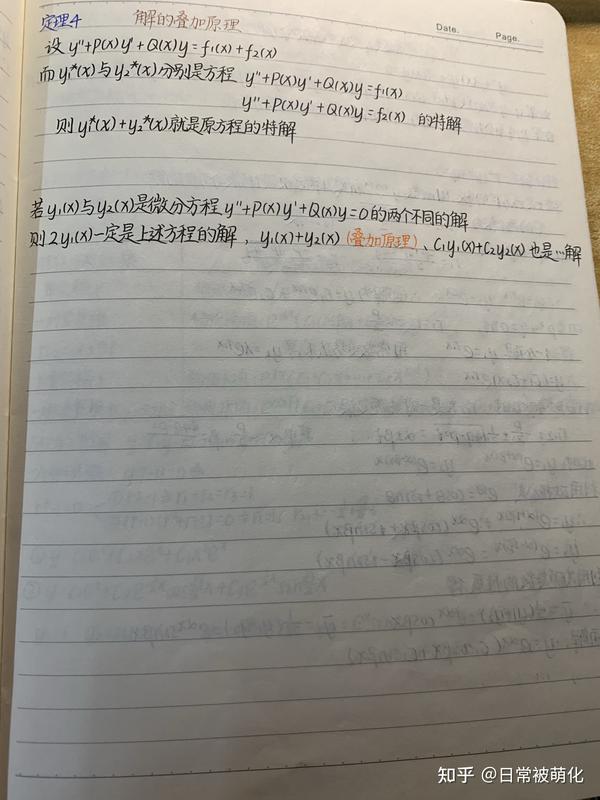 定理4 解的叠加原理
Date. Page.
设 y''+P(x)y'+Q(x)y=f₁(x)+f₂(x)
而y₁*(x)与y₂*(x)分别是方程 y''+P(x)y'+Q(x)y=f₁(x)
y''+P(x)y'+Q(x)y=f₂(x) 的特解
则y₁*(x)+y₂*(x)就是原方程的特解
若y₁(x)与y₂(x)是微分方程y''+P(x)y'+Q(x)y=0的两个不同的解
则2y₁(x)一定是上述方程的解，y₁(x)+y₂(x)(叠加原理)、C₁y₁(x)+C₂y₂(x)也是…解
知乎 @日常被萌化